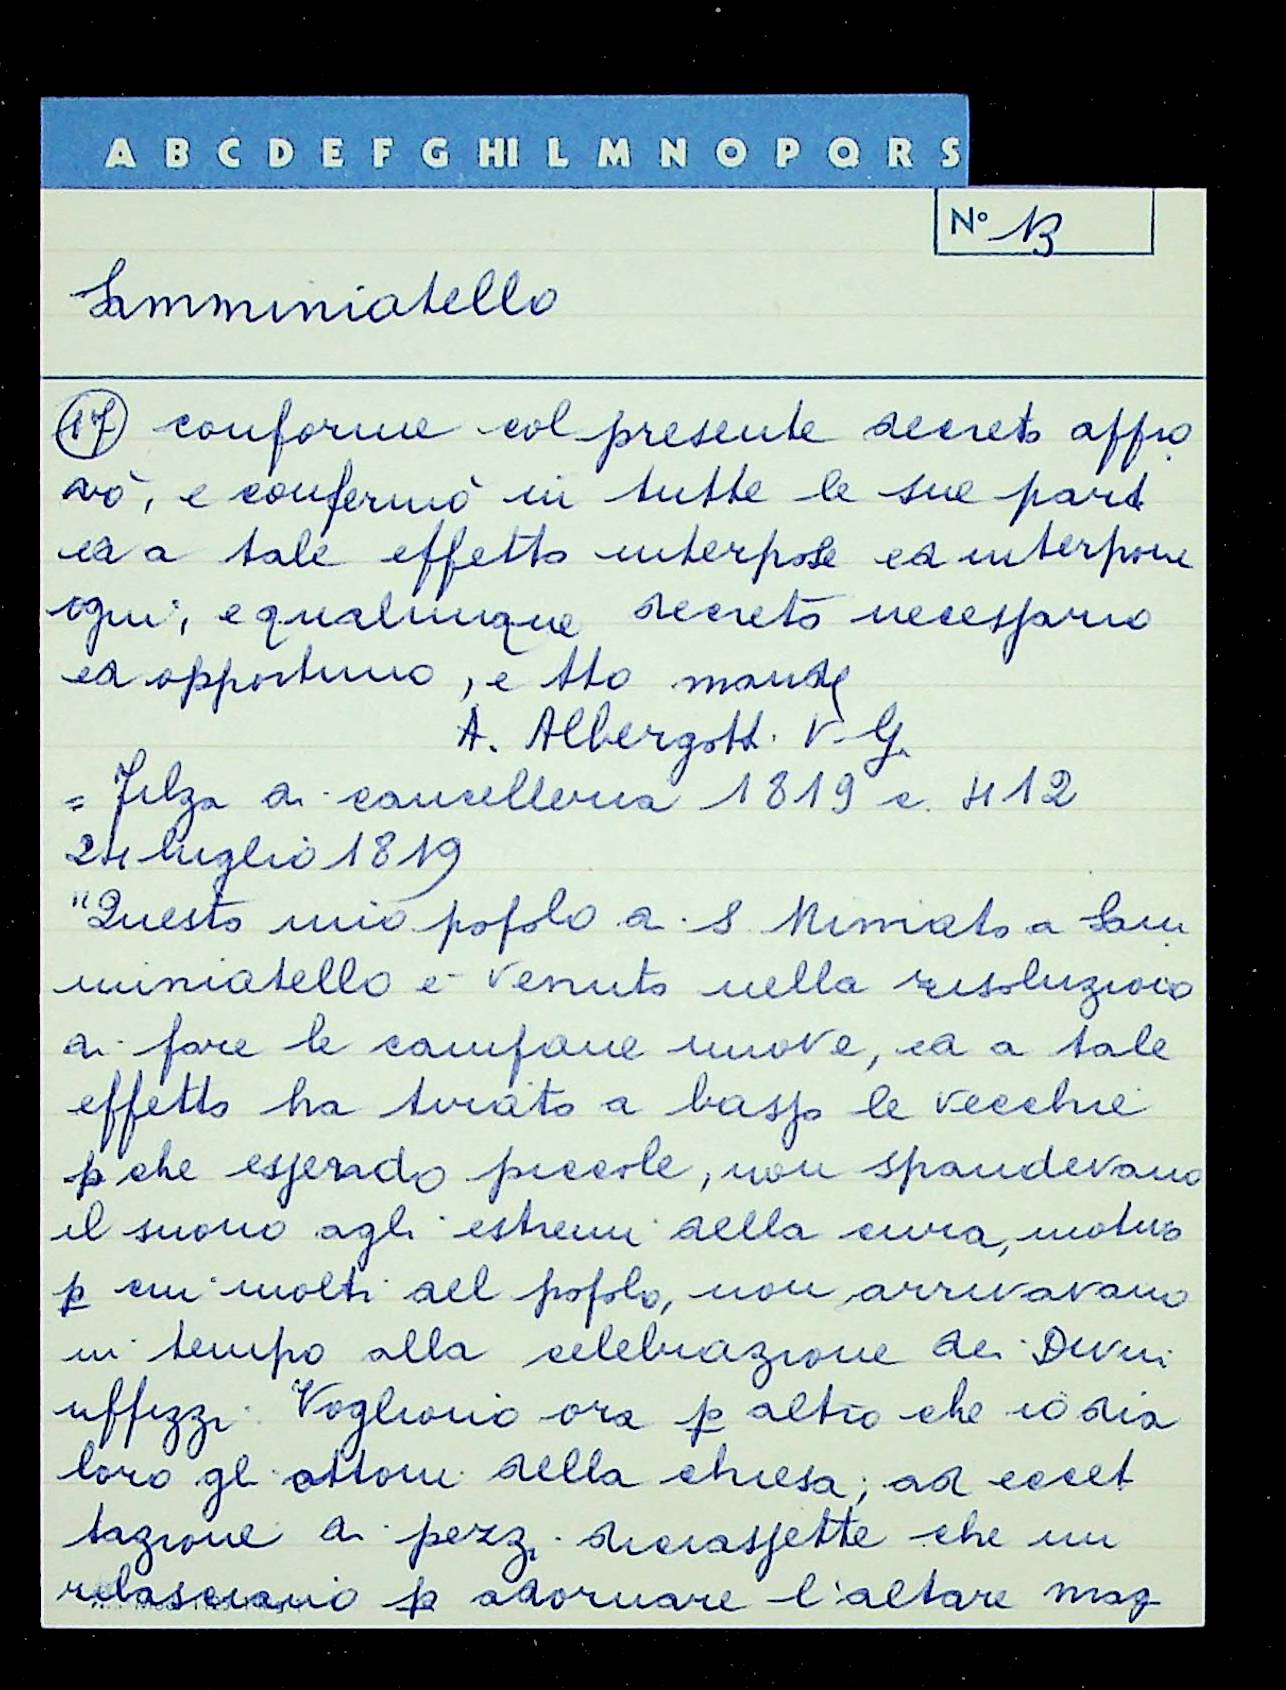 A B C D E F G HI L M N O P Q R S
N° 13
Samminiatello
17 conforme col presente decreto appro
vò, e confermò in tutte le sue parti
ed a tale effetto interpose ed interpone
ogni, e qualunque decreto necessario
ed opportuno, e tto mandò
A. Albergotti V. G.
= Filza di cancelleria 1819 c. 412
24 luglio 1819
"Questo mio popolo di S Miniato a Sam
miniatello è venuto nella risoluzione
di fare le campane nuove, ed a tale
effetto ha tirato a basso le vecchie
p che essendo piccole, non spandevano
il suono agli estremi della cura, motivo
p cui molti del popolo, non arrivavano
in tempo alla celebrazione dei Divini
uffizzi. Vogliono ora p altro che io dia
loro gli ottoni della chiesa; ad eccet
tazione di pezzi diciassette che mi
rilasciano p adornare l'altare mag